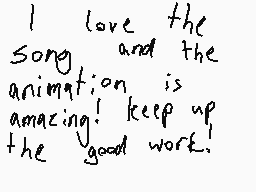 I love the
song and the
animation is
amazing! keep up
the good work!